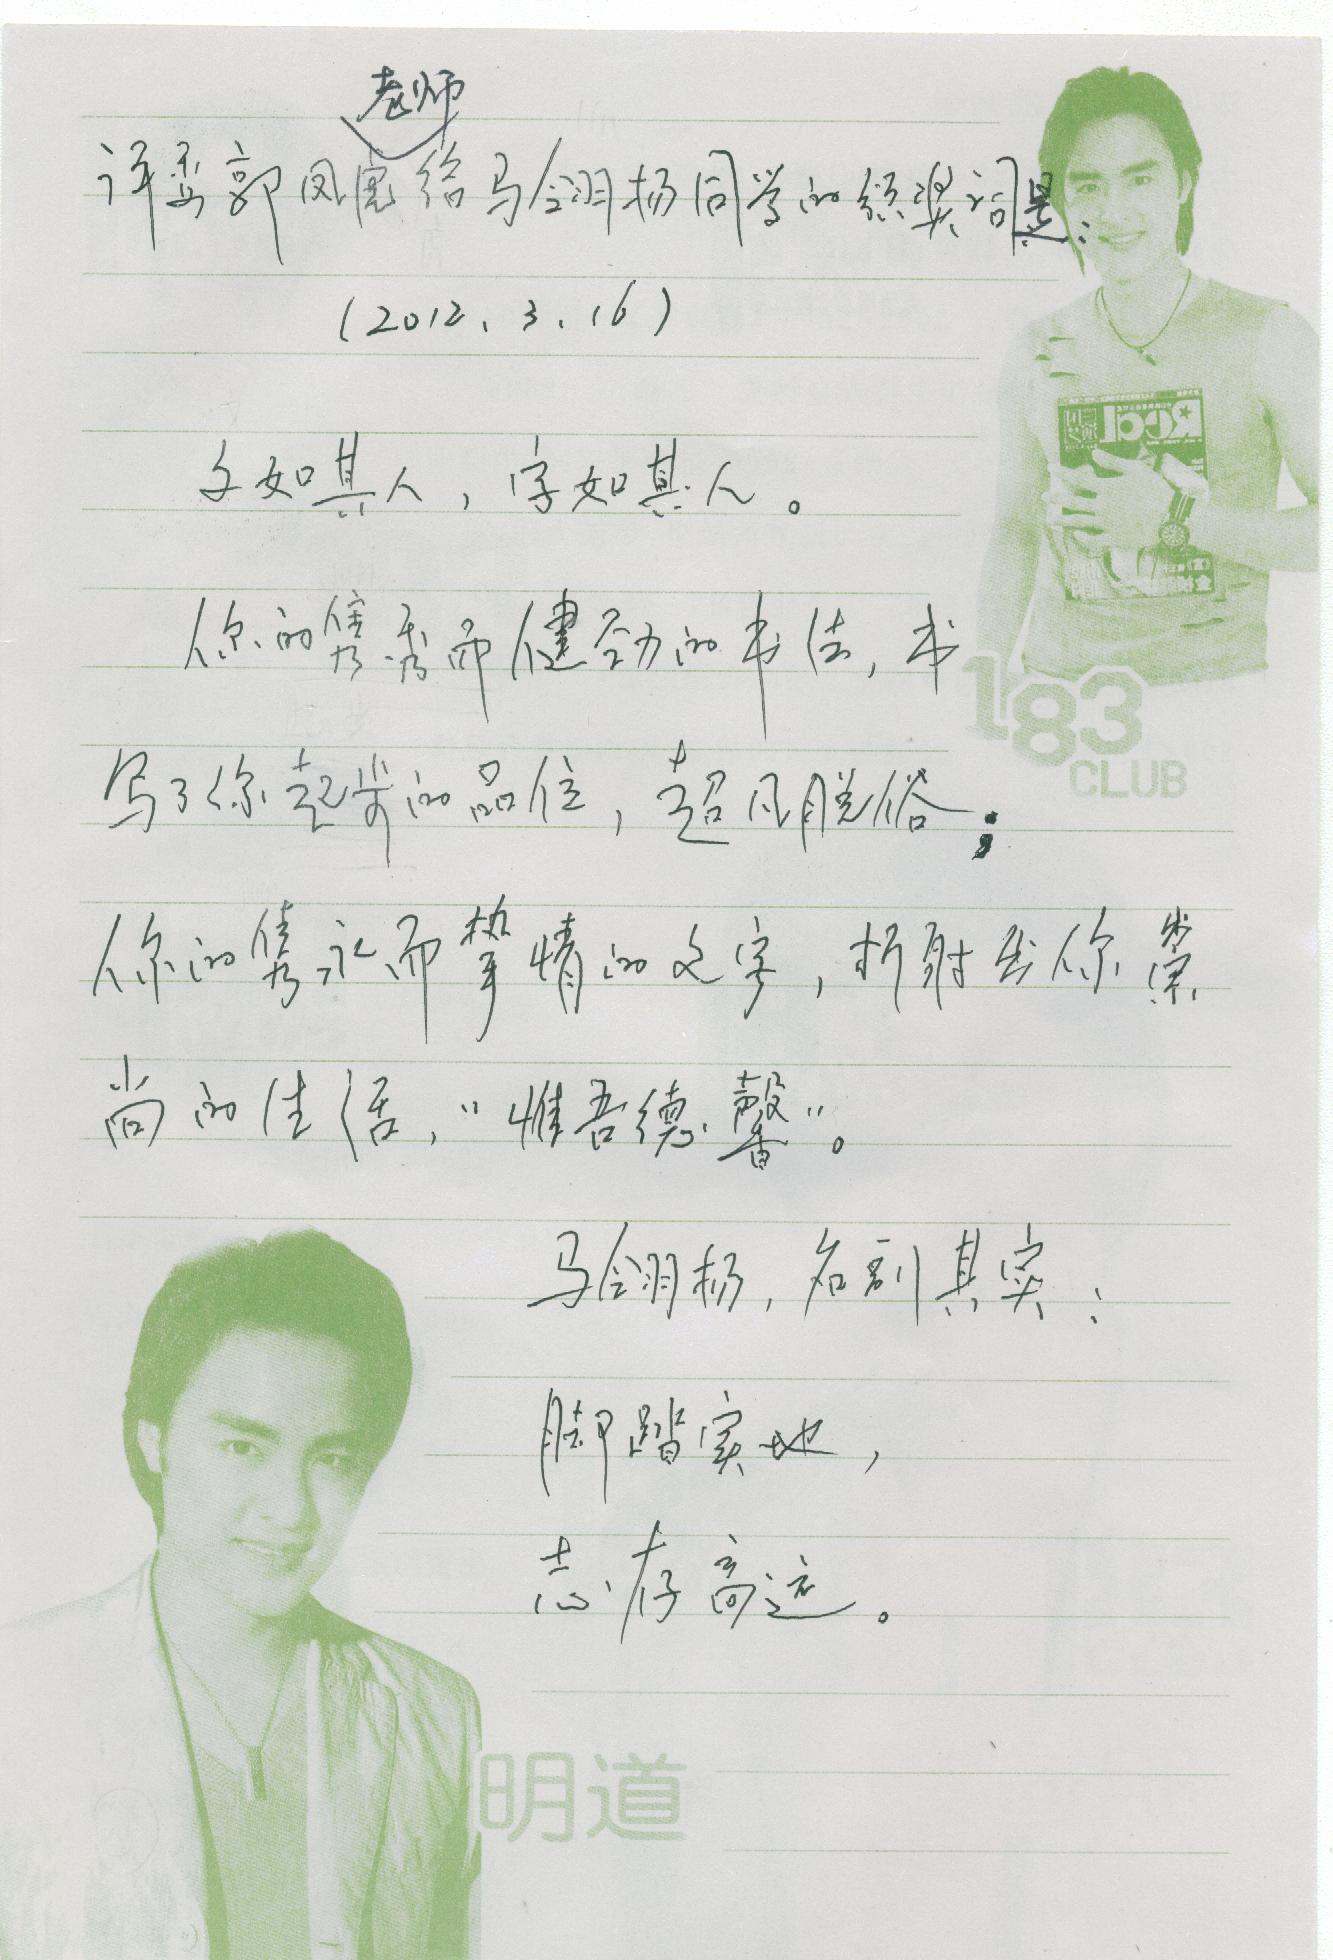 老师
评委郭凤给马翎扬同学的颁奖词是:
(2012.3.16)
文如其人,字如其人。
你的隽秀而健劲的书法,书
写了你起步的品位,超凡脱俗;
你的隽永而挚情的文字,折射出你崇
尚的生活,“惟吾德馨”。
马翎扬,名副其实:
脚踏实地,
志存高远。
183
CLUB
明道